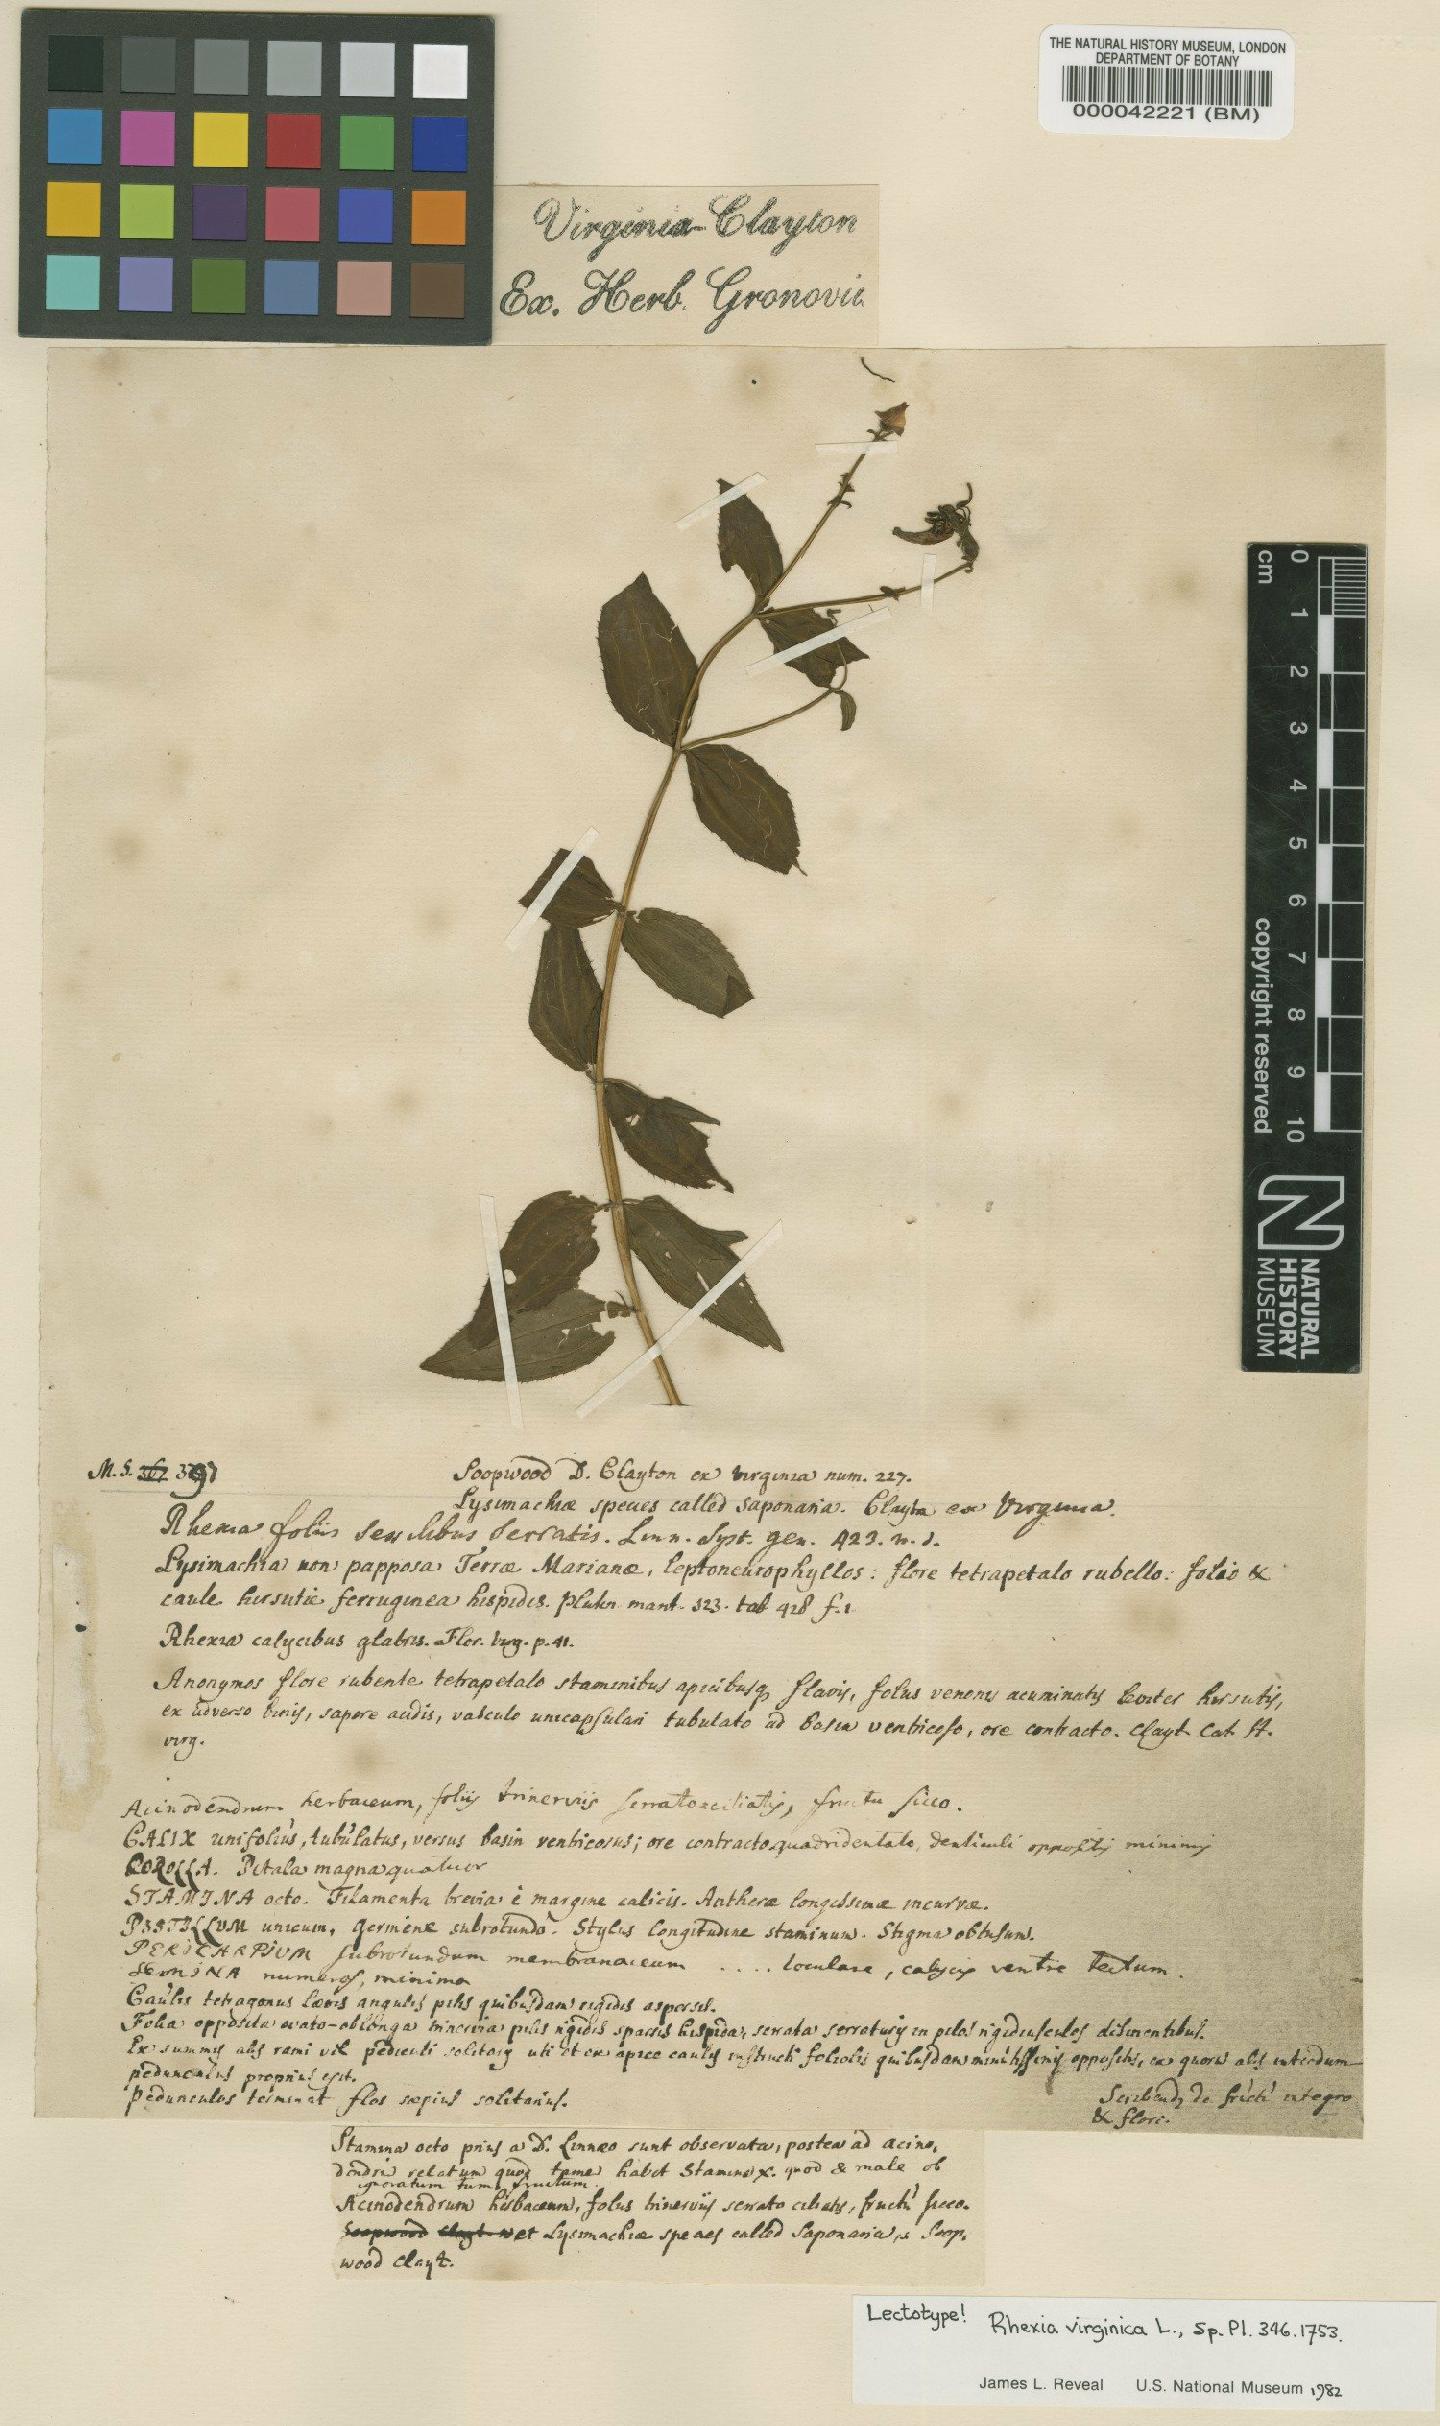 THE NATURAL HISTORY MUSEUM, LONDON
DEPARTMENT OF BOTANY
000042221 (BM)
Virginia-Clayton
Ex. Herb. Gronovii
cm 0 1 2 3 4 5 6 7 8 9 10
copyright reserved
NATURAL
HISTORY
MUSEUM
M. S. 367
Soopwood D. Clayton ex Virginia num. 227.
Lysimachiæ species called Saponaria. Clayton ex Virginia.
Rhexia foliis sessilibus serratis. Linn. Syst. gen. 423. n. 1.
Lysimachia non papposa Terræ Marianæ, leptoneurophyllos: flore tetrapetalo rubello: folio &
caule hirsutie ferruginea hispidis. Plukn mant. 123. tab 428 f. 1
Rhexia calycibus glabris. Flor. Virg. p. 41.
Anonymos flore rubente tetrapetalo staminibus apicibusq flavis, foliis venosis acuminatis hirsutis,
ex adverso binis, sapore acidis, vasculo unicapsulari tubulato ad basin ventricoso, ore contracto. Clayt. Cat. H.
virg.
Acinodendrum herbaceum, foliis trinerviis serrato-ciliatis, fructu sicco.
CALIX unifolius, tubulatus, versus basin ventricosus; ore contracto quadridentato, denticuli oppositi minimis
COROLLA. Petala magna quatuor
STAMINA octo. Filamenta brevia è margine calicis. Antheræ longissimæ incurvæ.
PISTILLUM unicum, germine subrotundo. Stylus longitudine staminum. Stigma obtusum.
PERICARPIUM subrotundum membranaceum .... loculare, calycis ventre tectum.
SEMINA numerosa, minima
Caulis tetragonus lævis angulis pilis quibusdam rigidis aspersis.
Folia opposita ovato-oblonga trinervia pilis rigidis sparsis hispida, serrata serraturis in pilos rigidiusculos desinentibus.
Ex summis alis rami vel pediculi solitarii uti et ex apice caulis instructi foliolis quibusdam minutissimis oppositis, ex quorum alis interdum
pedunculus proprius exit.
Pedunculos terminat flos sæpius solitarius.
de fructu integro
& flore.
Stamina octo prius a D. Linnæo sunt observata, postea ad acino,
dendri relatum quod tamen habet Stamina X. quod & male ob
ignoratum tum fructum.
Acinodendrum herbaceum, foliis trinerviis serrato ciliatis, fructu sicco.
Soopwood Clayt. Lysimachiæ species called Saponaria, & Soop,
wood Clayt.
Lectotype! Rhexia virginica L., Sp. Pl. 346. 1753.
James L. Reveal U.S. National Museum 1982